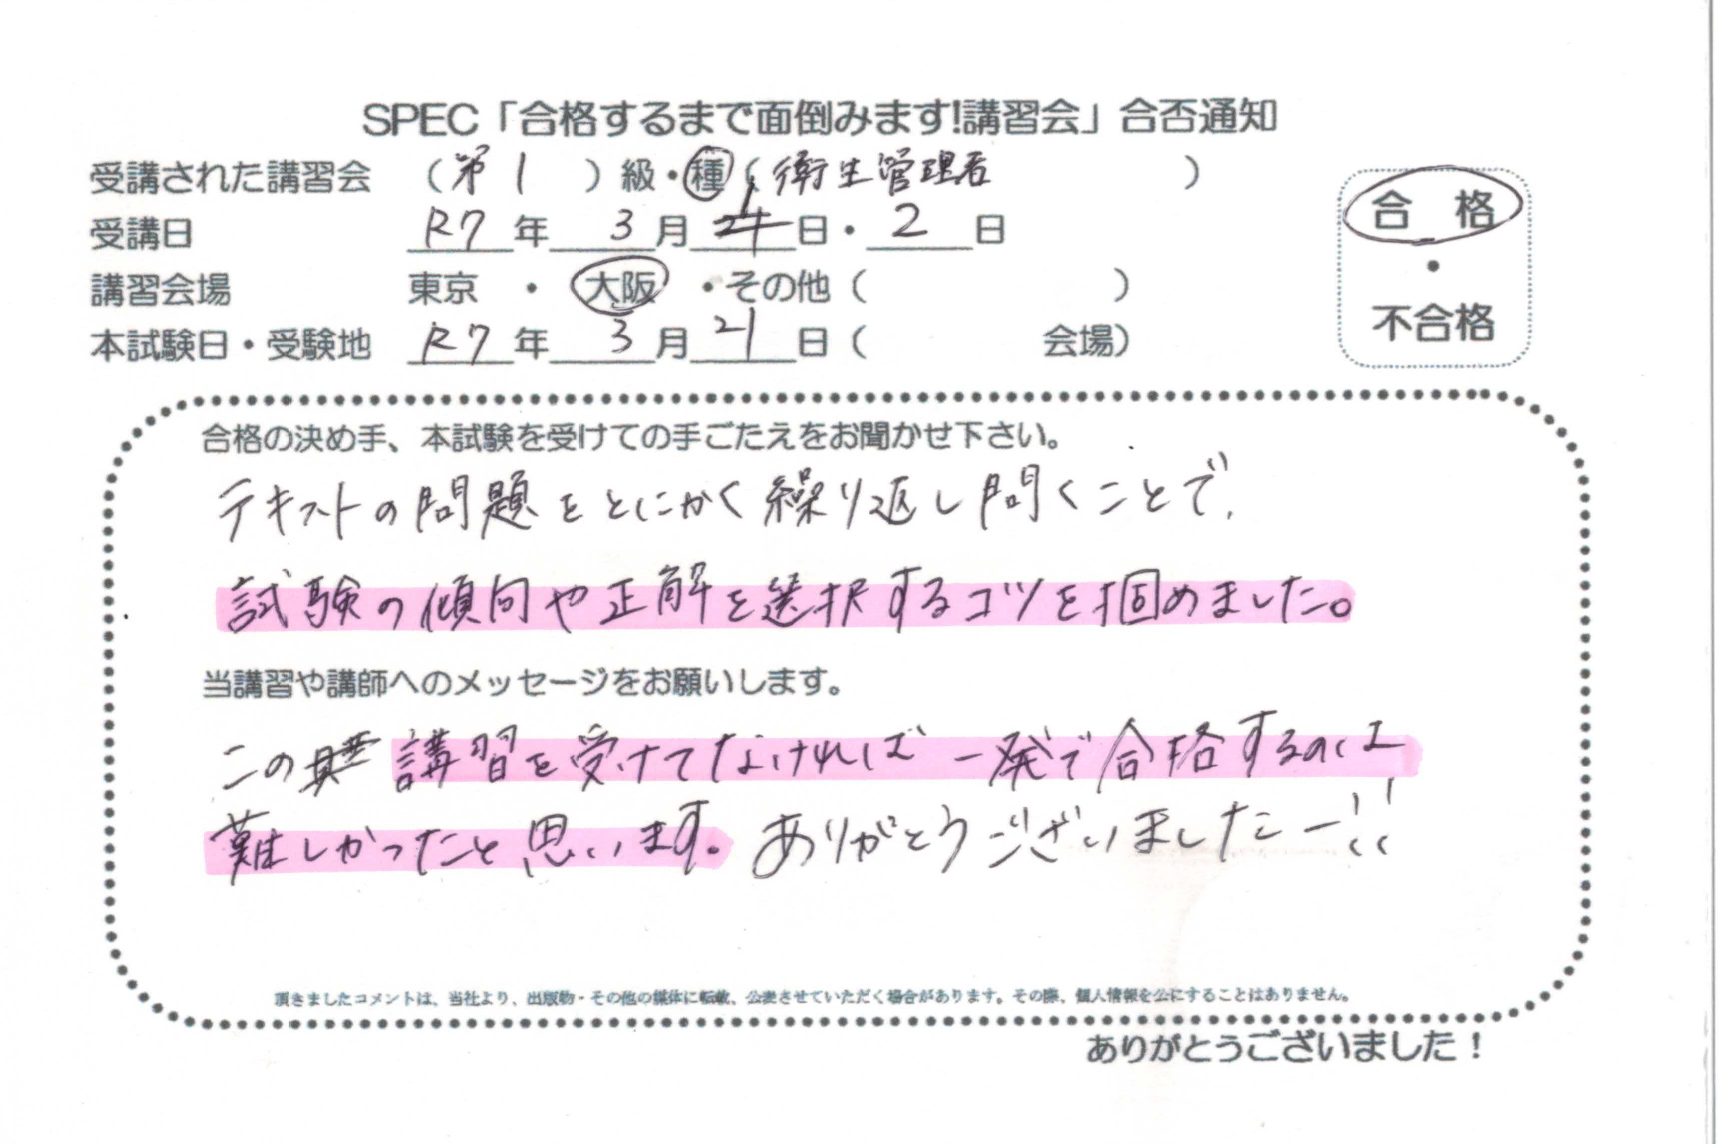 SPEC「合格するまで面倒みます!講習会」合否通知
受講された講習会 （第1）級・種（衛生管理者）
受講日 R7年3月1日・2日
講習会場 東京・大阪・その他（ ）
本試験日・受験地 R7年3月21日（ 会場）
合格
・
不合格
合格の決め手、本試験を受けての手ごたえをお聞かせ下さい。
テキストの問題をとにかく繰り返し問くことで、
試験の傾向や正解を選択するコツを掴めました。
当講習や講師へのメッセージをお願いします。
この講習を受けてなければ一発で合格するのは
難しかったと思います。ありがとうございましたー!!
頂きましたコメントは、当社より、出版物・その他の媒体に転載、公表させていただく場合があります。その際、個人情報を公にすることはありません。
ありがとうございました！